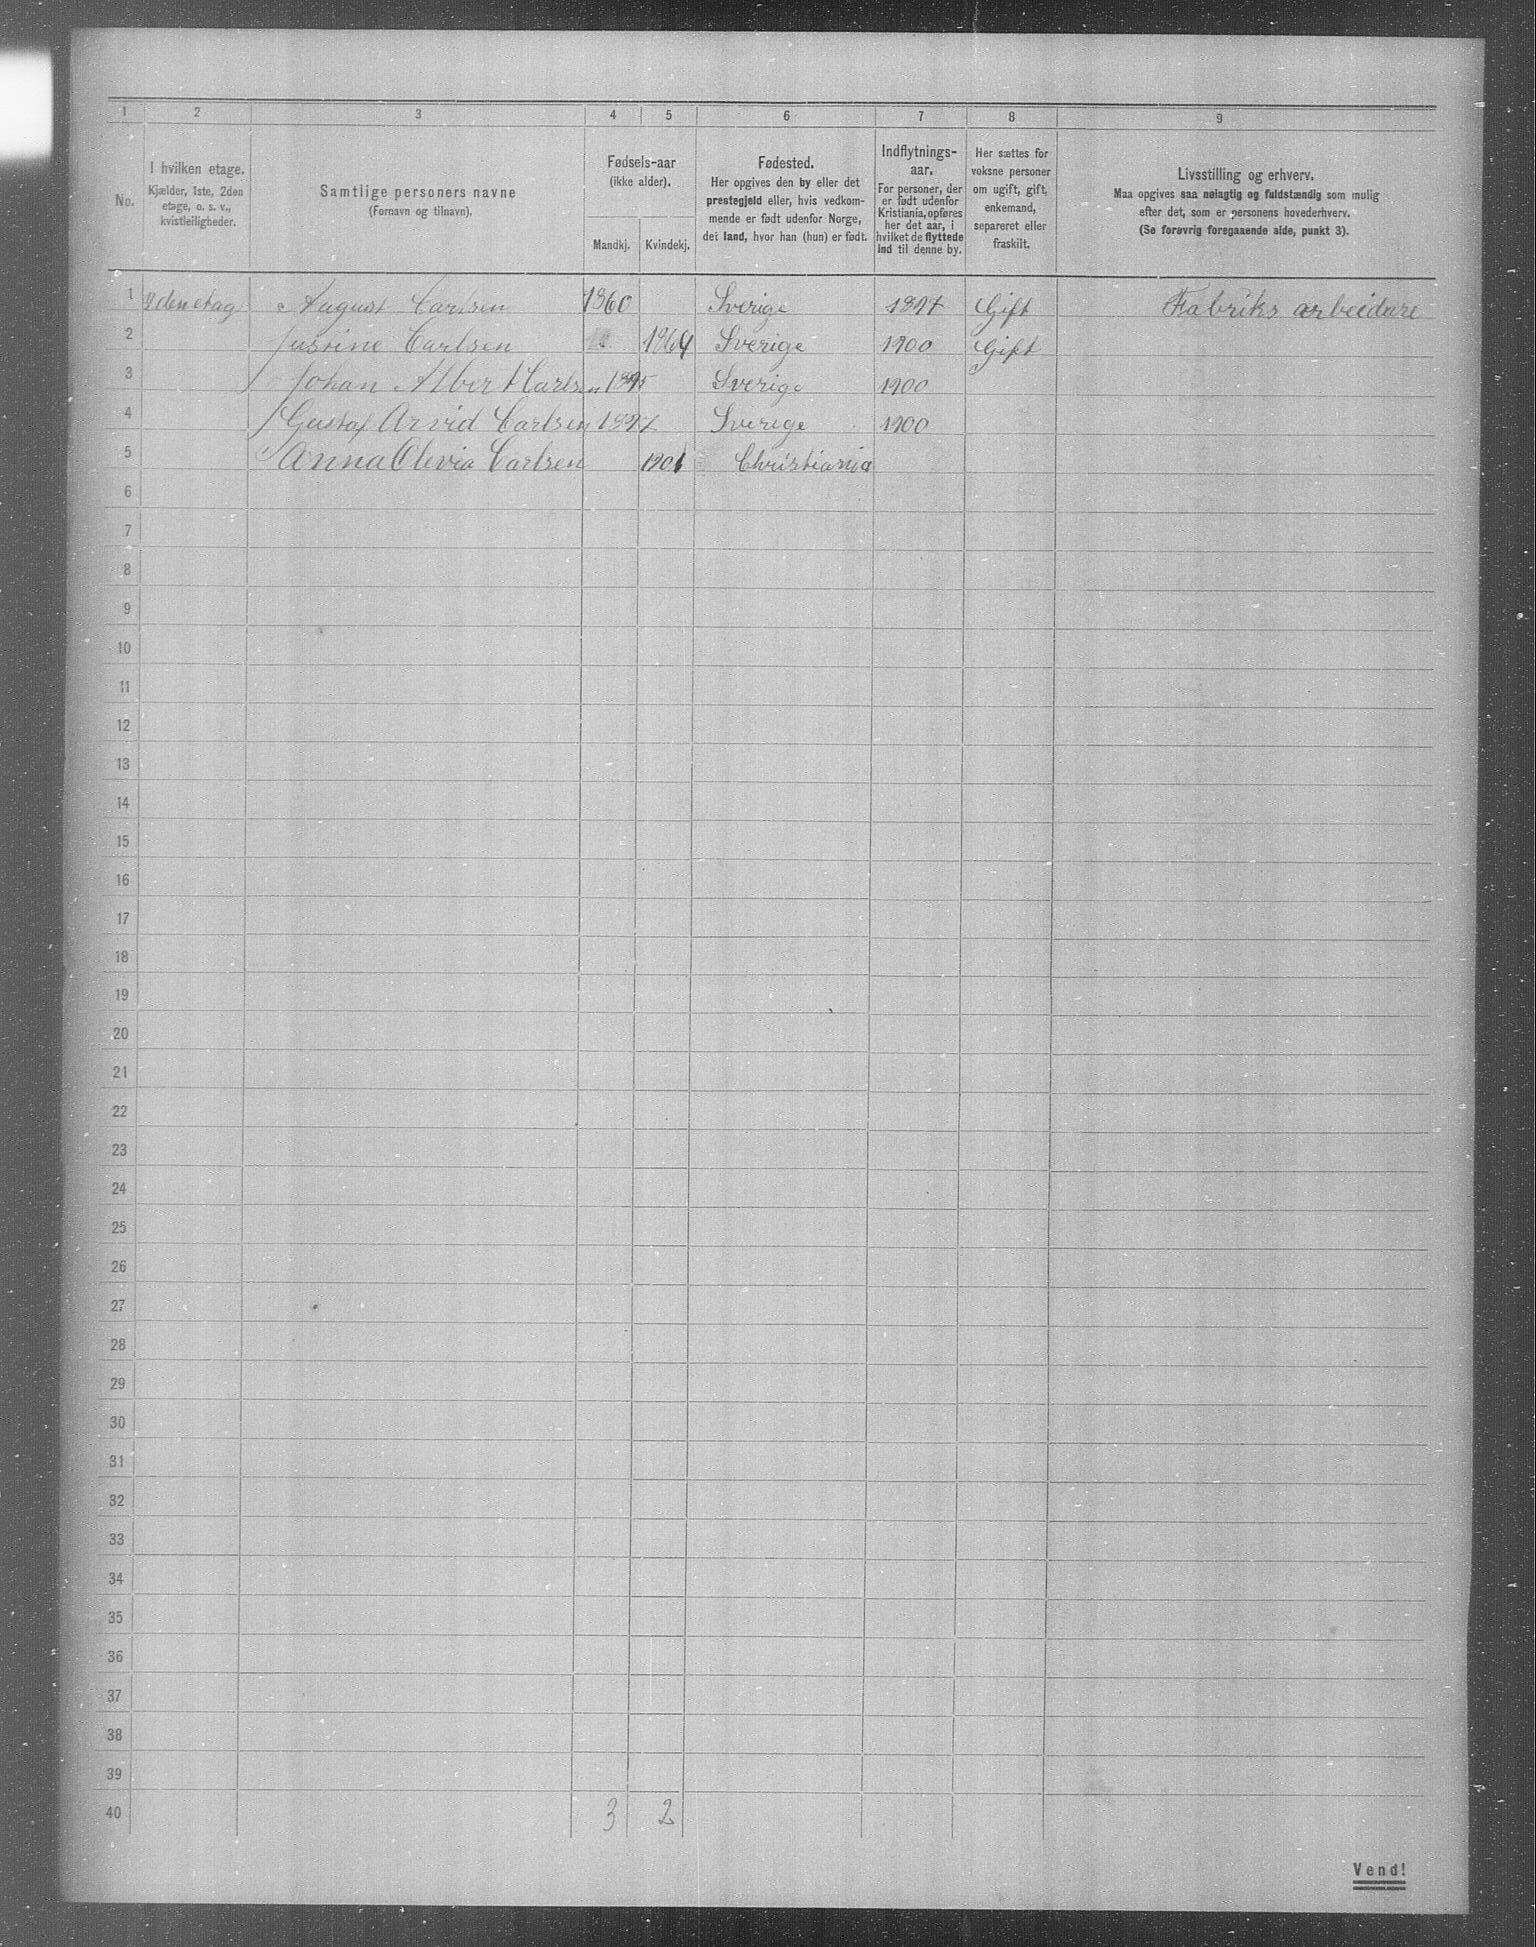 1 2 3 4 5 6 7 8 9
No.
I hvilken etage.
Kjælder, 1ste, 2den
etage, o. s. v.,
kvistleiligheder.
Samtlige personers navne
(Fornavn og tilnavn).
Fødsels-aar
(ikke alder).
Mandkj. Kvindekj.
Fødested.
Her opgives den by eller det
prestegjeld eller, hvis vedkom-
mende er født udenfor Norge,
det land, hvor han (hun) er født.
Indflytnings-
aar.
For personer, der
er født udenfor
Kristiania, opføres
her det aar, i
hvilket de flyttede
ind til denne by.
Her sættes for
voksne personer
om ugift, gift,
enkemand,
separeret eller
fraskilt.
Livsstilling og erhverv.
Maa opgives saa nøiagtig og fuldstændig som mulig
efter det, som er personens hovederhverv.
(Se forøvrig foregaaende side, punkt 3).
1 2den etag August Carlsen 1860 Sverige 1897 Gift Fabriks arbeidare
2 Justine Carlsen 1864 Sverige 1900 Gift
3 Johan Albert Carlsen 1895 Sverige 1900
4 Gustaf Arvid Carlsen 1897 Sverige 1900
5 Anna Olevia Carlsen 1901 Christiania
6
7
8
9
10
11
12
13
14
15
16
17
18
19
20
21
22
23
24
25
26
27
28
29
30
31
32
33
34
35
36
37
38
39
40 3 2
Vend!